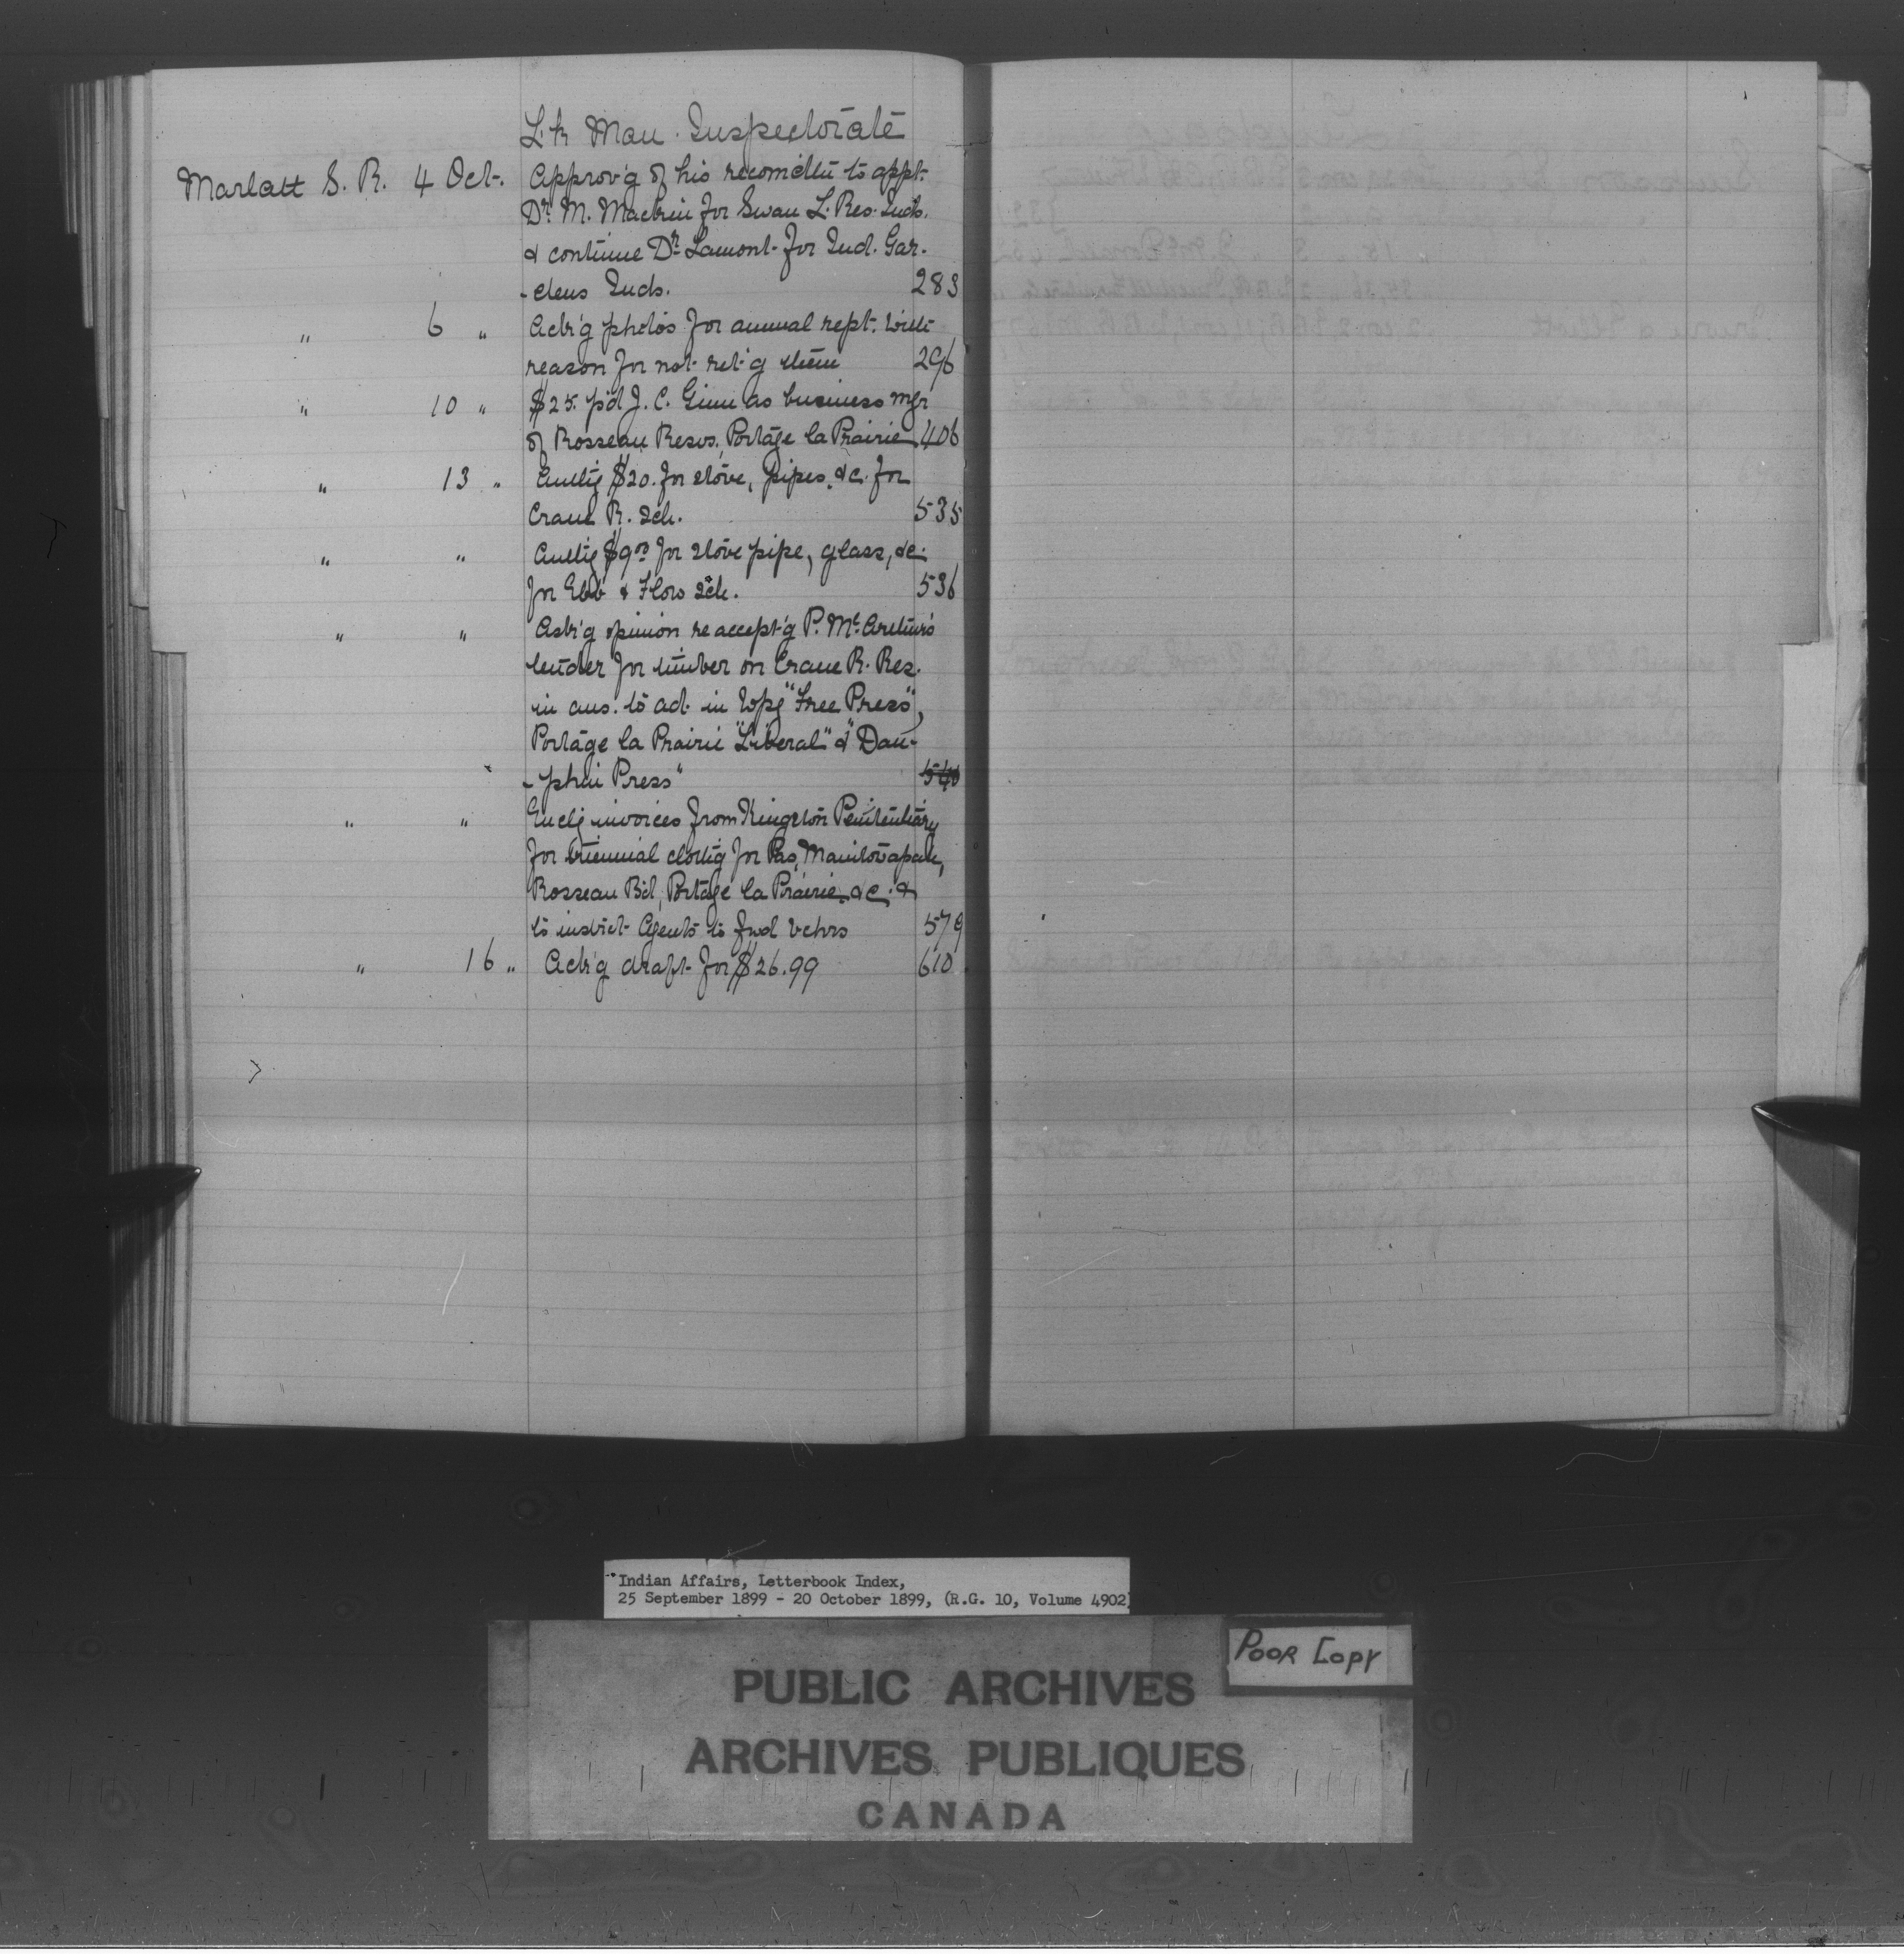 L. & Man. Inspectorate
Marlatt S. R. 4 Oct. Approv'g of his recomdtn to appt.
Dr. M. for Swan L. Res. Inds.
& continue Dr. Lamont for Ind. Gar-
-dens Inds. 283
" 6 " Ack'g photos for annual rept. with
reason for not ret'g them 296
" 10 " $25. p'd J. C. Ginn as business mgr
of Rosseau Resvs. Portage la Prairie 406
" 13 " $20. for stove, pipes, &c. for
Crane R. Sch. 535
" " $9 for stove pipe, glass, &c.
for Ebb & Flow Sch. 536
" " Ask'g opinion re accept'g P. McArthur's
tender for timber on Crane R. Res.
in ans. to adt. in Wpg "Free Press",
Portage la Prairie "Liberal" & "Dau-
-phin Press" 540
" " Enclg invoices from Kingston Penitentiary
for triennial clothg for Pas, Manitowapah,
Rosseau Bd, Portage la Prairie &c. &
to instrct Agents to fwd vchrs 579
" 16 " Ack'g draft for $26.99 610
Indian Affairs, Letterbook Index,
25 September 1899 - 20 October 1899, (R.G. 10, Volume 4902)
POOR COPY
PUBLIC ARCHIVES
ARCHIVES PUBLIQUES
CANADA